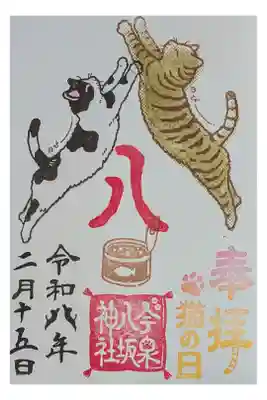 奉拝
猫の日
八
今泉
八坂
神社
令和八年
二月十五日